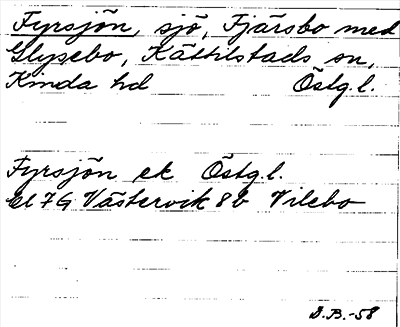 Fyrsjön, sjö, Fjärsbo med
Glypebo, Kättilstads sn,
Kinda hd Östg.l.
Fyrsjön ek Östg.l.
bl 7G Västervik 8b Vilebo
D.B.-58